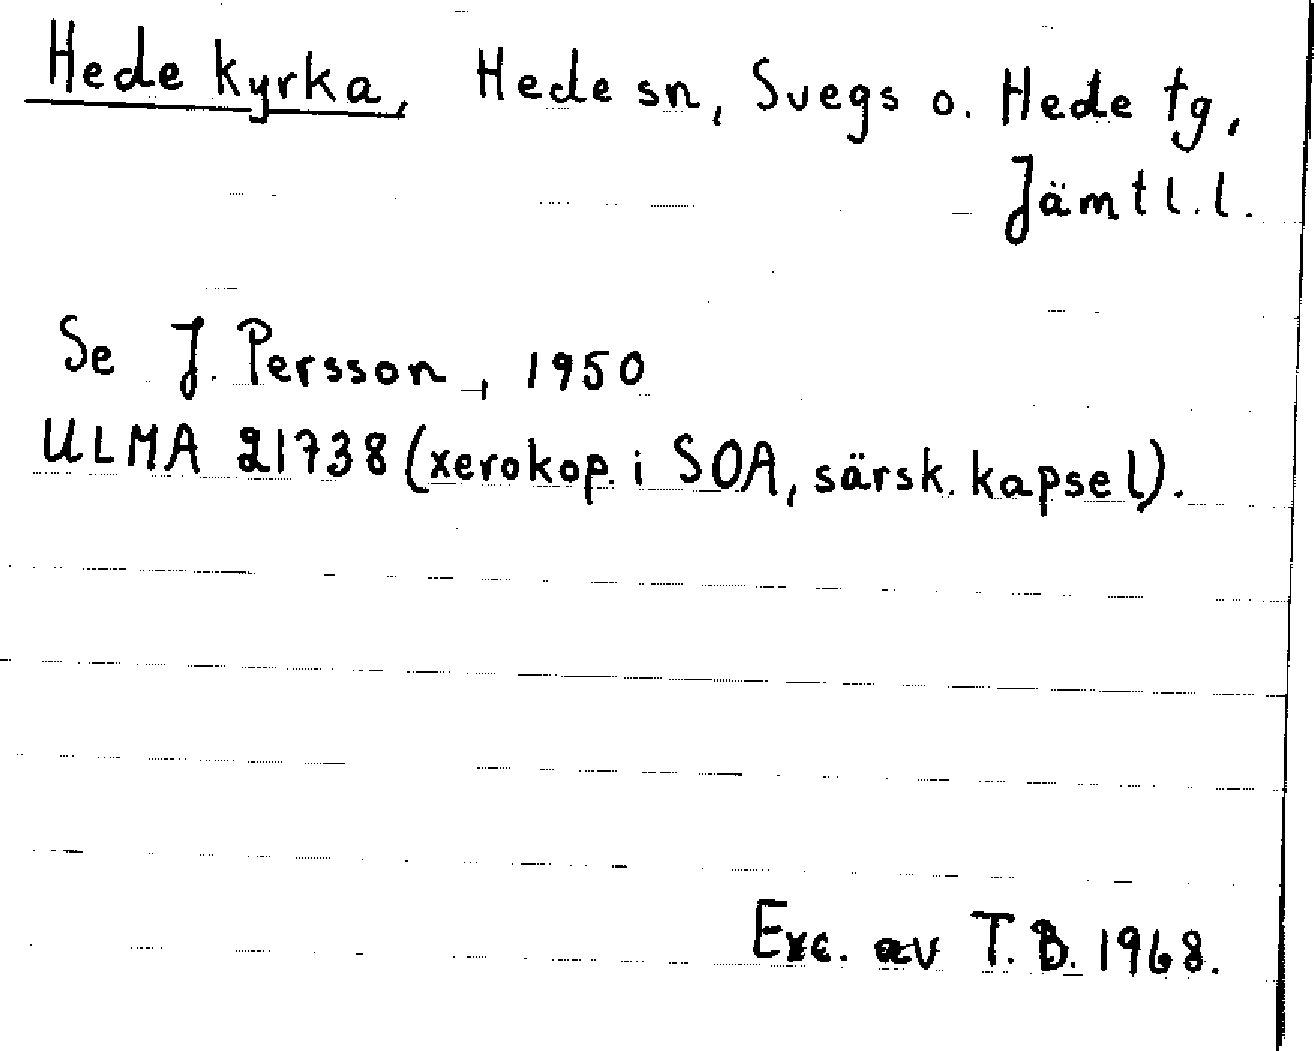 Hede kyrka, Hede sn, Svegs o. Hede tg,
Jämtl.l.
Se J. Persson, 1950
ULMA 21738 (xerokop. i SOA, särsk. kapsel).
Exc. av T.B. 1968.